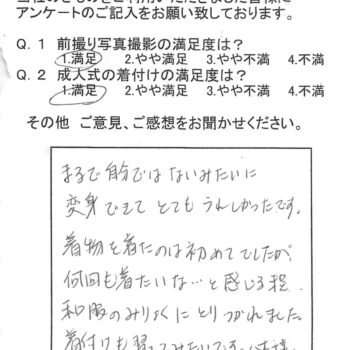 アンケートのご記入をお願い致しております。
Q. 1 前撮り写真撮影の満足度は?
1.満足 2.やや満足 3.やや不満 4.不満
Q. 2 成人式の着付けの満足度は?
1.満足 2.やや満足 3.やや不満 4.不満
その他 ご意見、ご感想をお聞かせください。
まるで自分ではないみたいに
変身できて とてもうれしかったです。
着物を着たのは初めてでしたが、
何回も着たいな…と感じる程、
和服のみりょくにとりつかれました。
着付けも習ってみたいです。